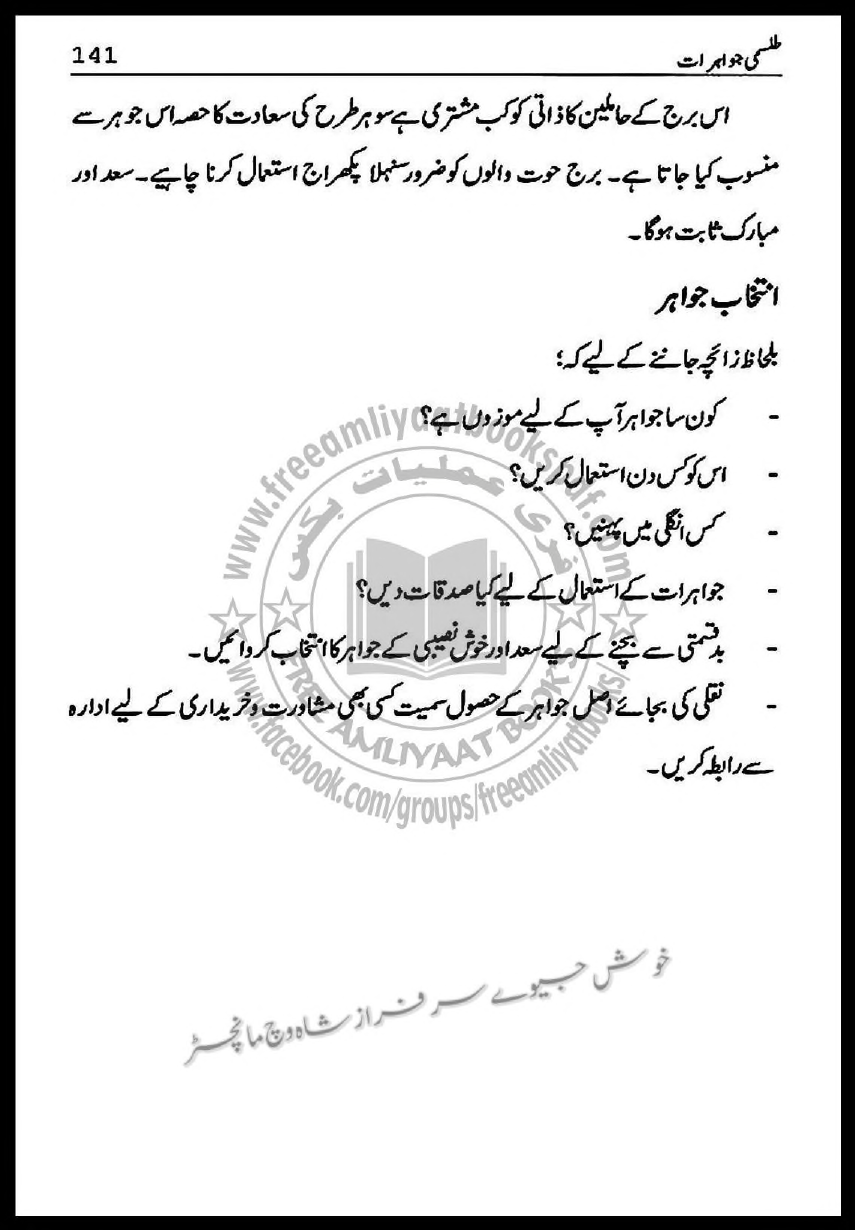 طلسمی جواہرات 141
اس برج کے حاملین کا ذاتی کوکب مشتری ہے سو ہر طرح کی سعادت کا حصہ اس جوہر سے
منسوب کیا جاتا ہے۔ برج حوت والوں کو ضرور سنہلا پکھراج استعمال کرنا چاہیے۔ سعد اور
مبارک ثابت ہوگا۔
انتخاب جواہر
بلحاظ زائچہ جاننے کے لیے کہ؛
- کون سا جواہر آپ کے لیے موزوں ہے؟
- اس کو کس دن استعمال کریں؟
- کس انگلی میں پہنیں؟
- جواہرات کے استعمال کے لیے کیا صدقات دیں؟
- بدقسمتی سے بچنے کے لیے سعد اور خوش نصیبی کے جواہر کا انتخاب کروائیں۔
- نقلی کی بجائے اصلی جواہر کے حصول سمیت کسی بھی مشاورت و خریداری کے لیے ادارہ
سے رابطہ کریں۔
www.freeamliyaatbookspdf.com
فری عملیات بکس
FREE AMLIYAAT BOOKS
www.facebook.com/groups/freeamliyatbooks/
خوش جیوے سرفراز شاہ وچ مانچسٹر